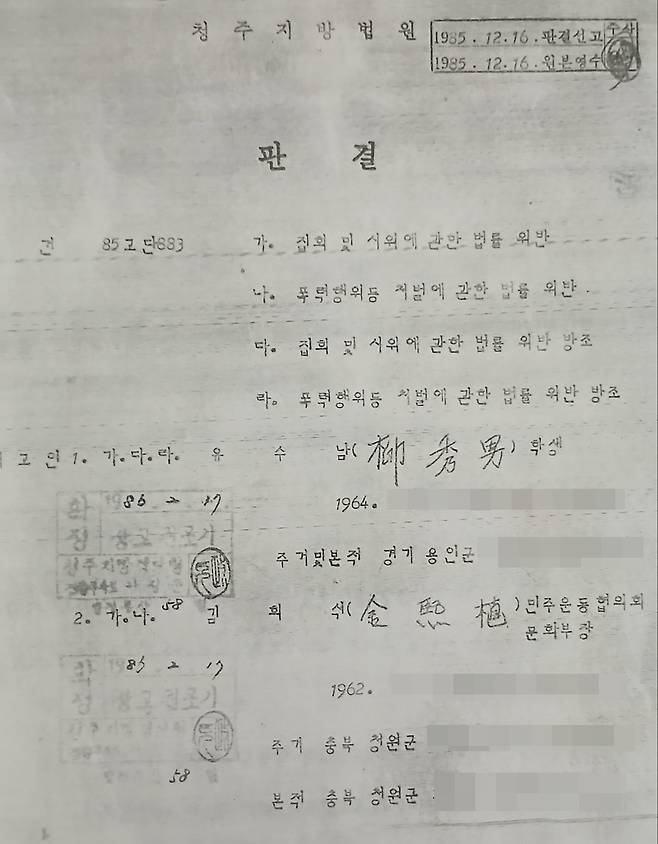 청주지방법원
1985.12.16.판결선고
1985.12.16.원본영수
판 결
건 85고단883 가. 집회 및 시위에 관한 법률 위반
나. 폭력행위등 처벌에 관한 법률 위반.
다. 집회 및 시위에 관한 법률 위반 방조
라. 폭력행위등 처벌에 관한 법률 위반 방조
고인 1. 가.다.라. 유 수 남(柳秀男) 학생
86 2 17
1964.
주거및본적 경기 용인군
2. 가.나. 김 희 식(金熙植) 민주운동협의회
문화부장
58
86 2 17
1962.
주거 충북 청원군
58
본적 충북 청원군